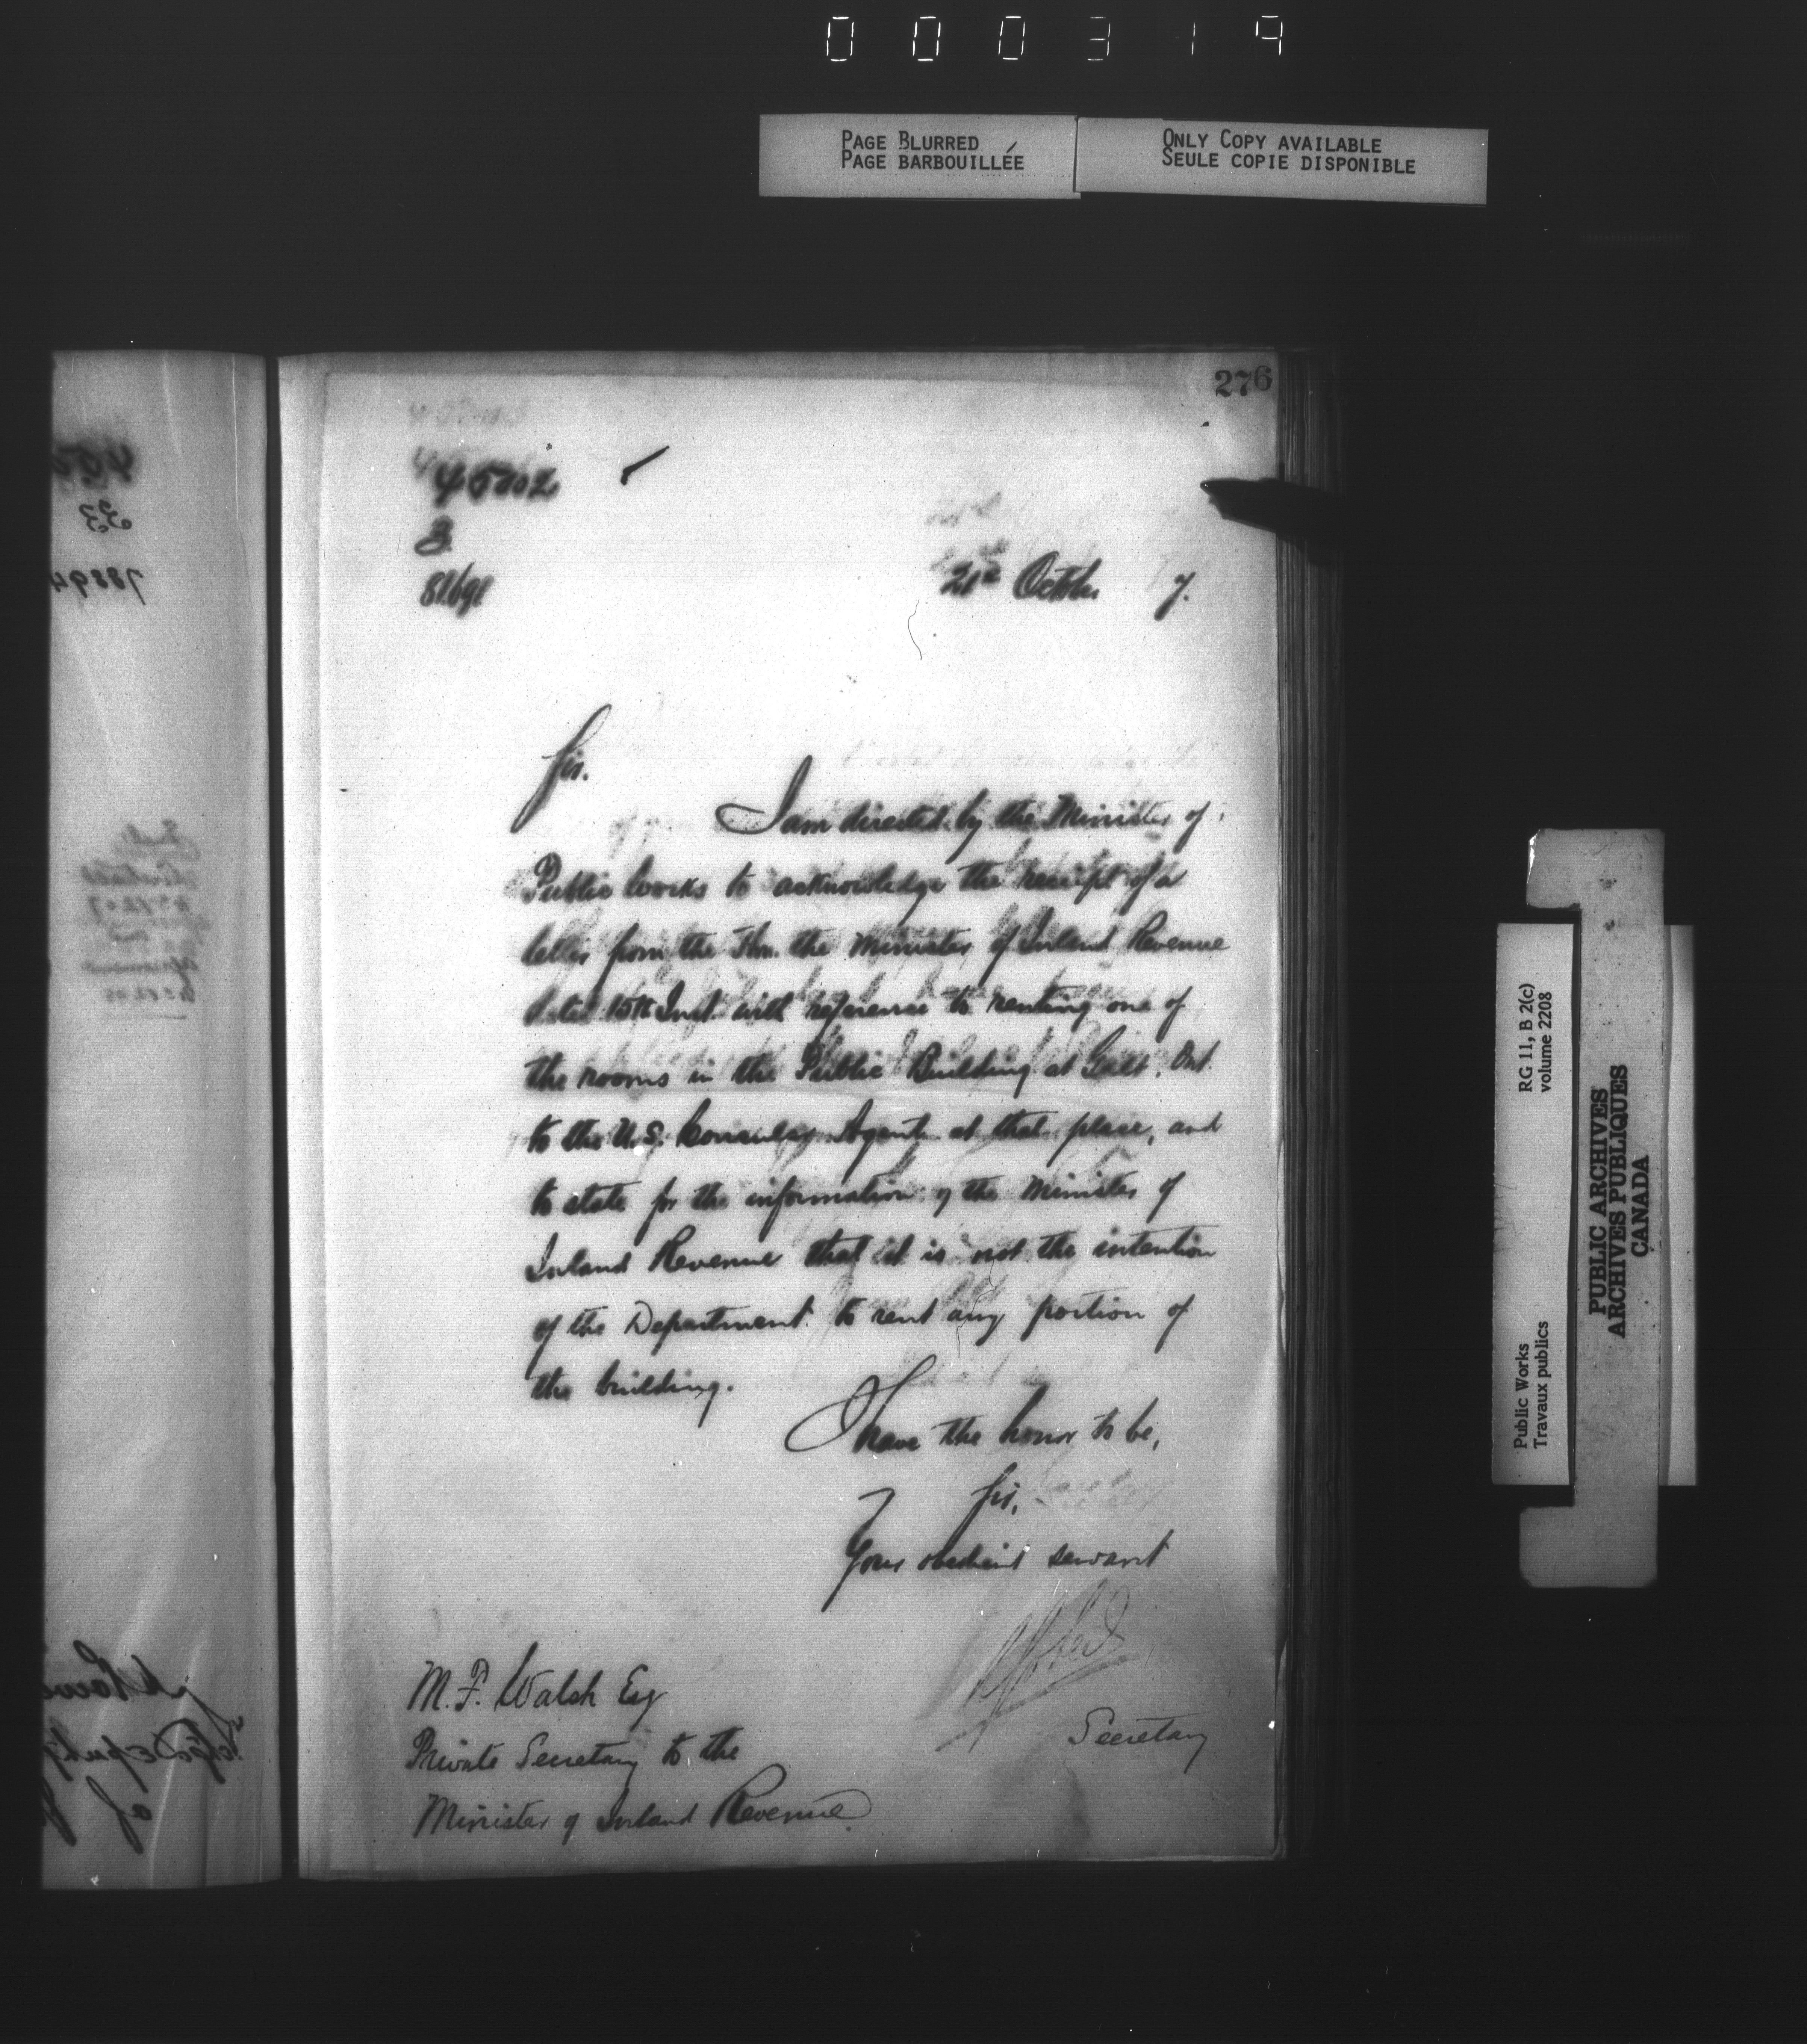 000319
PAGE BLURRED
PAGE BARBOUILLÉE
ONLY COPY AVAILABLE
SEULE COPIE DISPONIBLE
276
3
October 7.
Sir.
I am directed by the Minister of
Public Works to acknowledge the receipt of a
letter from the Hon. the Minister of Inland Revenue
dated 15th Inst. with reference to renting one of
the rooms in the Public Building at Galt, Ont.
to the U.S. Consular Agent at that place, and
to state for the information of the Minister of
Inland Revenue that it is not the intention
of the Department to rent any portion of
the building.
I have the honor to be,
Sir,
Your obedient servant
Secretary
M.F. Walsh Esq
Private Secretary to the
Minister of Inland Revenue.
RG 11, B 2(c)
volume 2208
Public Works
Travaux publics
PUBLIC ARCHIVES
ARCHIVES PUBLIQUES
CANADA